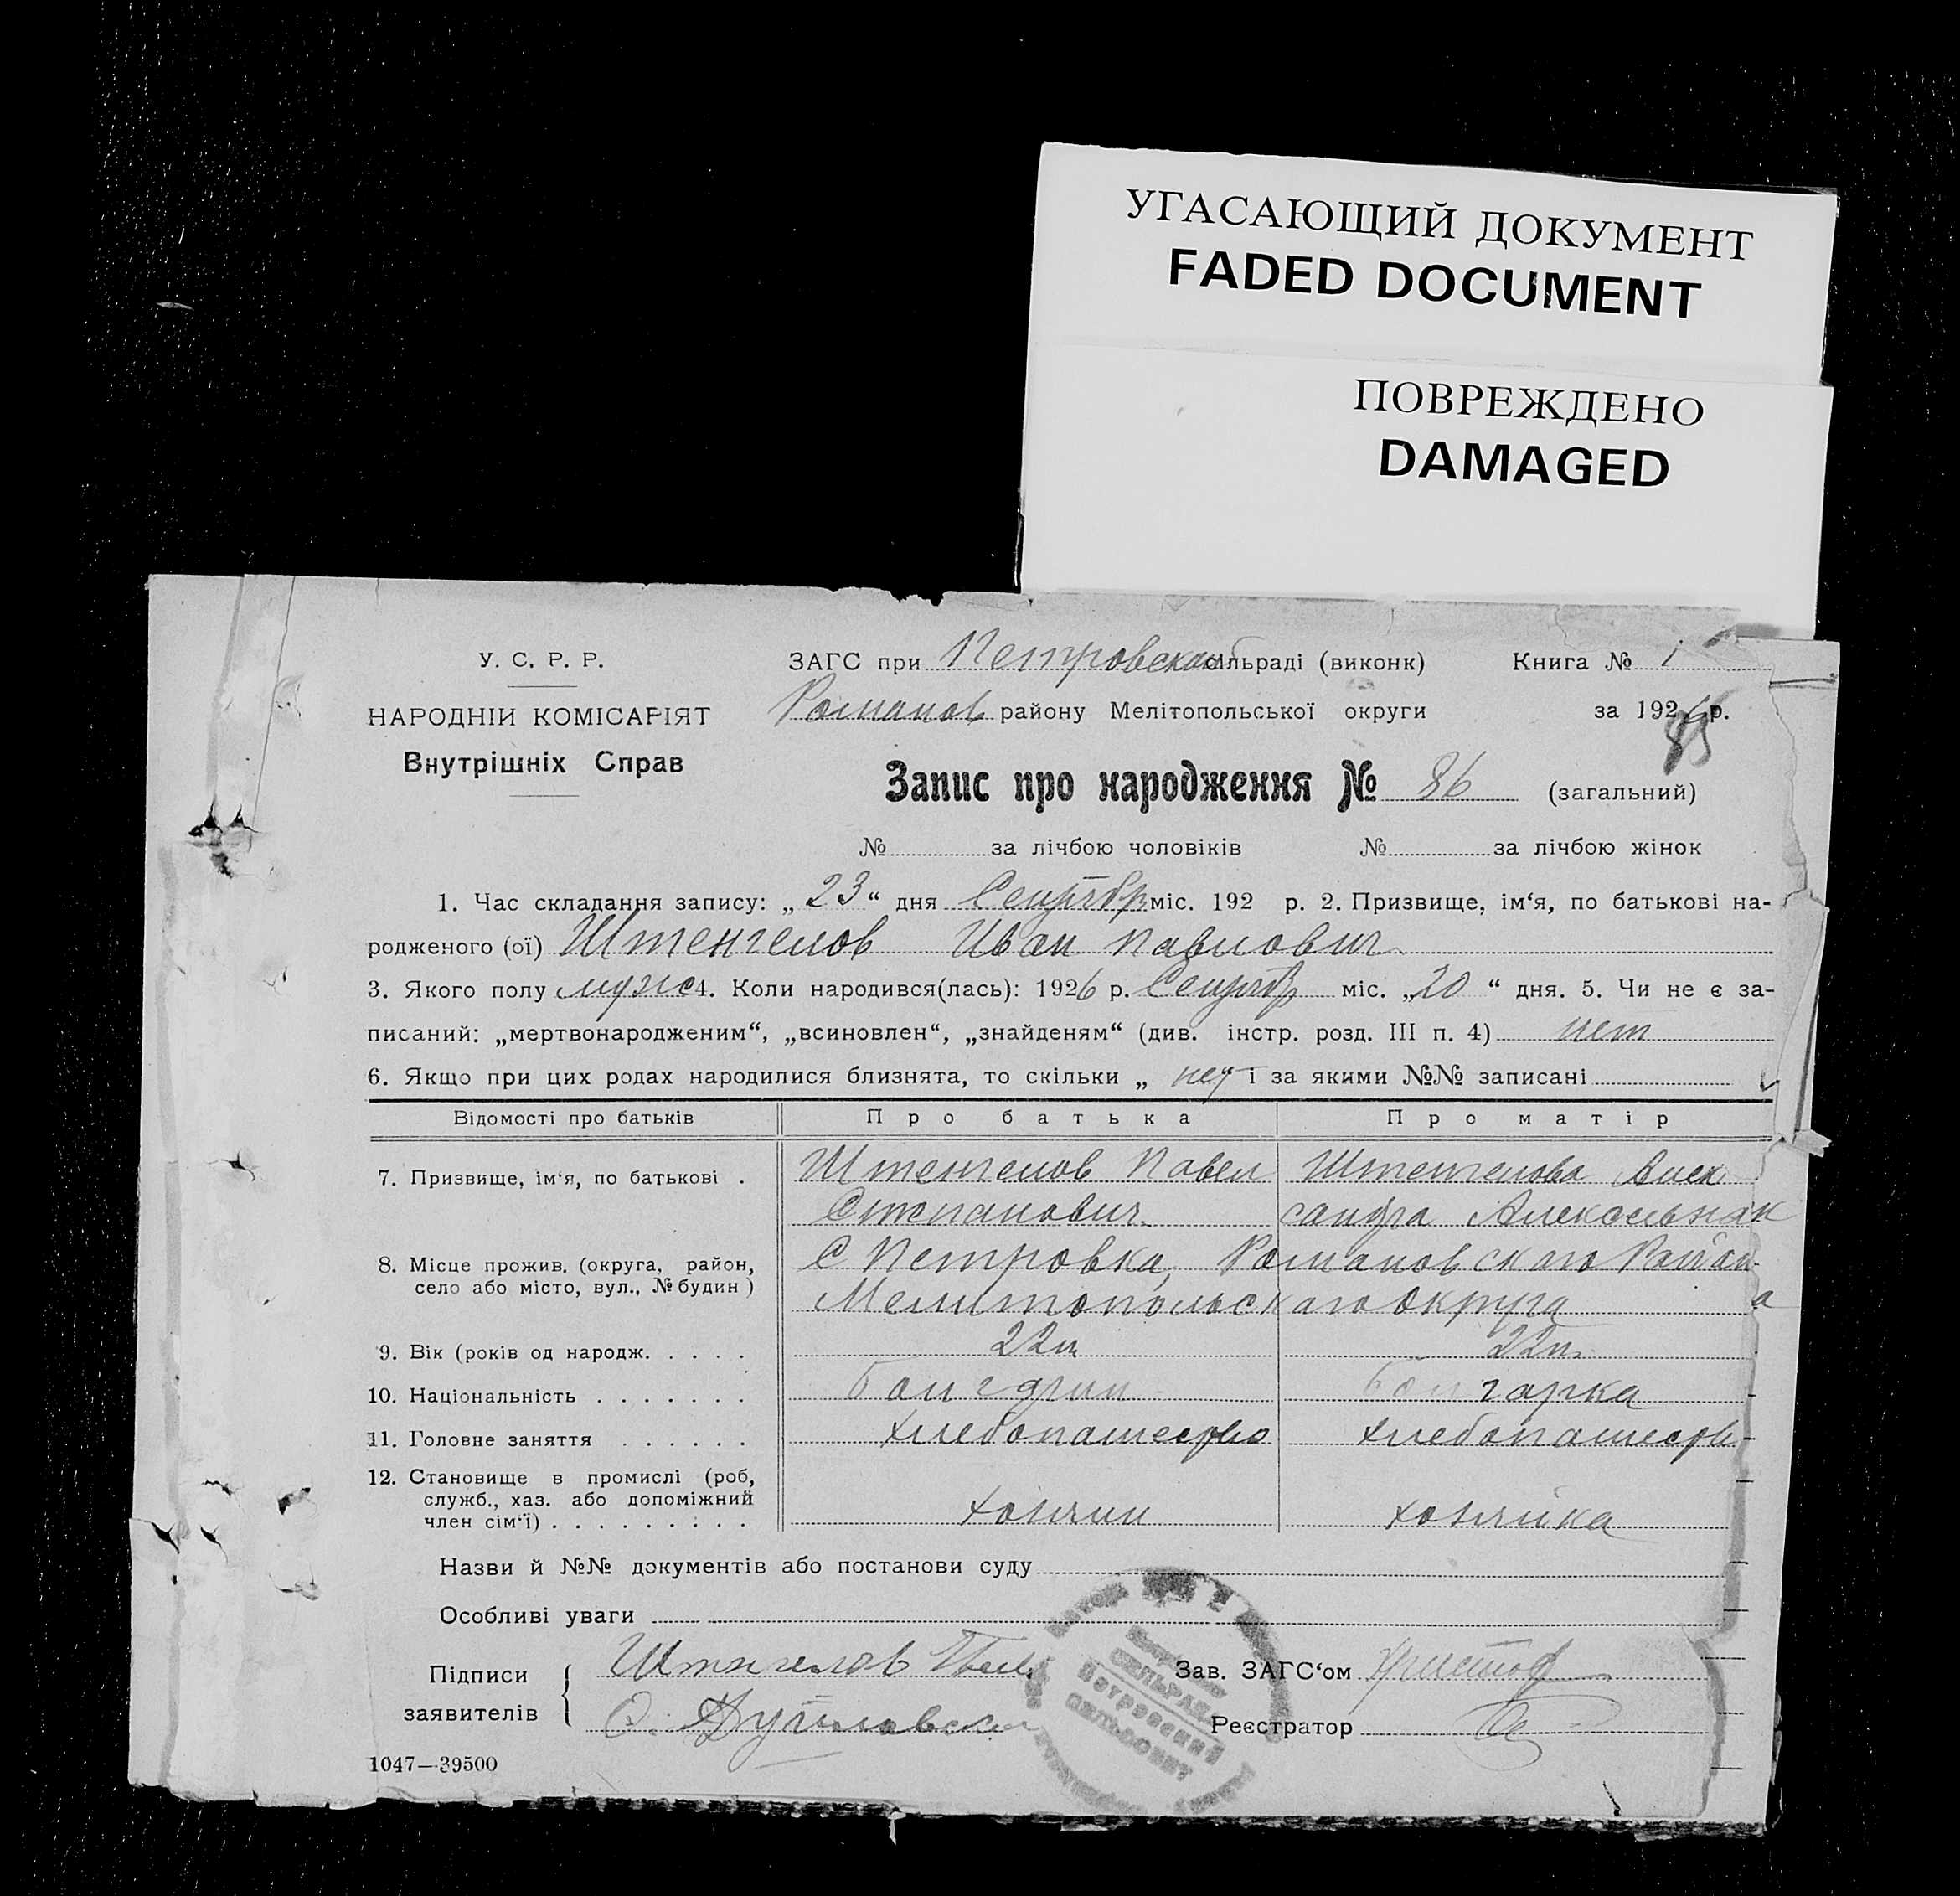 УГАСАЮЩИЙ ДОКУМЕНТ
FADED DOCUMENT
ПОВРЕЖДЕНО
DAMAGED
У. С. Р. Р. ЗАГС при Петровском сільраді (виконк) Книга № 1
НАРОДНІЙ КОМІСАРІЯТ Романов району Мелітопольської округи за 1926 р.
Внутрішніх Справ
85
Запис про народження № 86 (загальний)
№ за лічбою чоловіків № за лічбою жінок
1. Час складання запису: „ 23 “ дня Сентябр міс. 192 р. 2. Призвище, ім‘я, по батькові на-
родженого (ої) Штенгелов Иван Павлович
3. Якого полу муж 4. Коли народився(лась): 1926 р. Сентябр міс. „ 20 “ дня. 5. Чи не є за-
писаний: „мертвонародженим“, „всиновлен“, „знайденям“ (див. інстр. розд. III п. 4) нет
6. Якщо при цих родах народилися близнята, то скільки „ нет і за якими №№ записані
Відомості про батьків Про батька Про матір
7. Призвище, ім‘я, по батькові . Штенгелов Павел Штенгелова Алек
Степанович сандра
8. Місце прожив. (округа, район, С Петровка, Романовского Район
село або місто, вул., № будин ) Мелитопольского Округа а
9. Вік (років од народж. . . . . 22л 22л.
10. Національність . . . . . . . Болгарин Болгарка
11. Головне заняття . . . . . . Хлебопашество Хлебопашеств
12. Становище в промислі (роб,
служб., хаз. або допоміжний
член сім‘ї) . . . . . . . . . хозяин хозяйка
Назви й №№ документів або постанови суду
Особливі уваги
Підписи Штенгелов Зав. ЗАГС‘ом
заявителів О. Реєстратор
СІЛЬРАДА
Петровский
СЕЛЬСОВЕТ
1047—39500